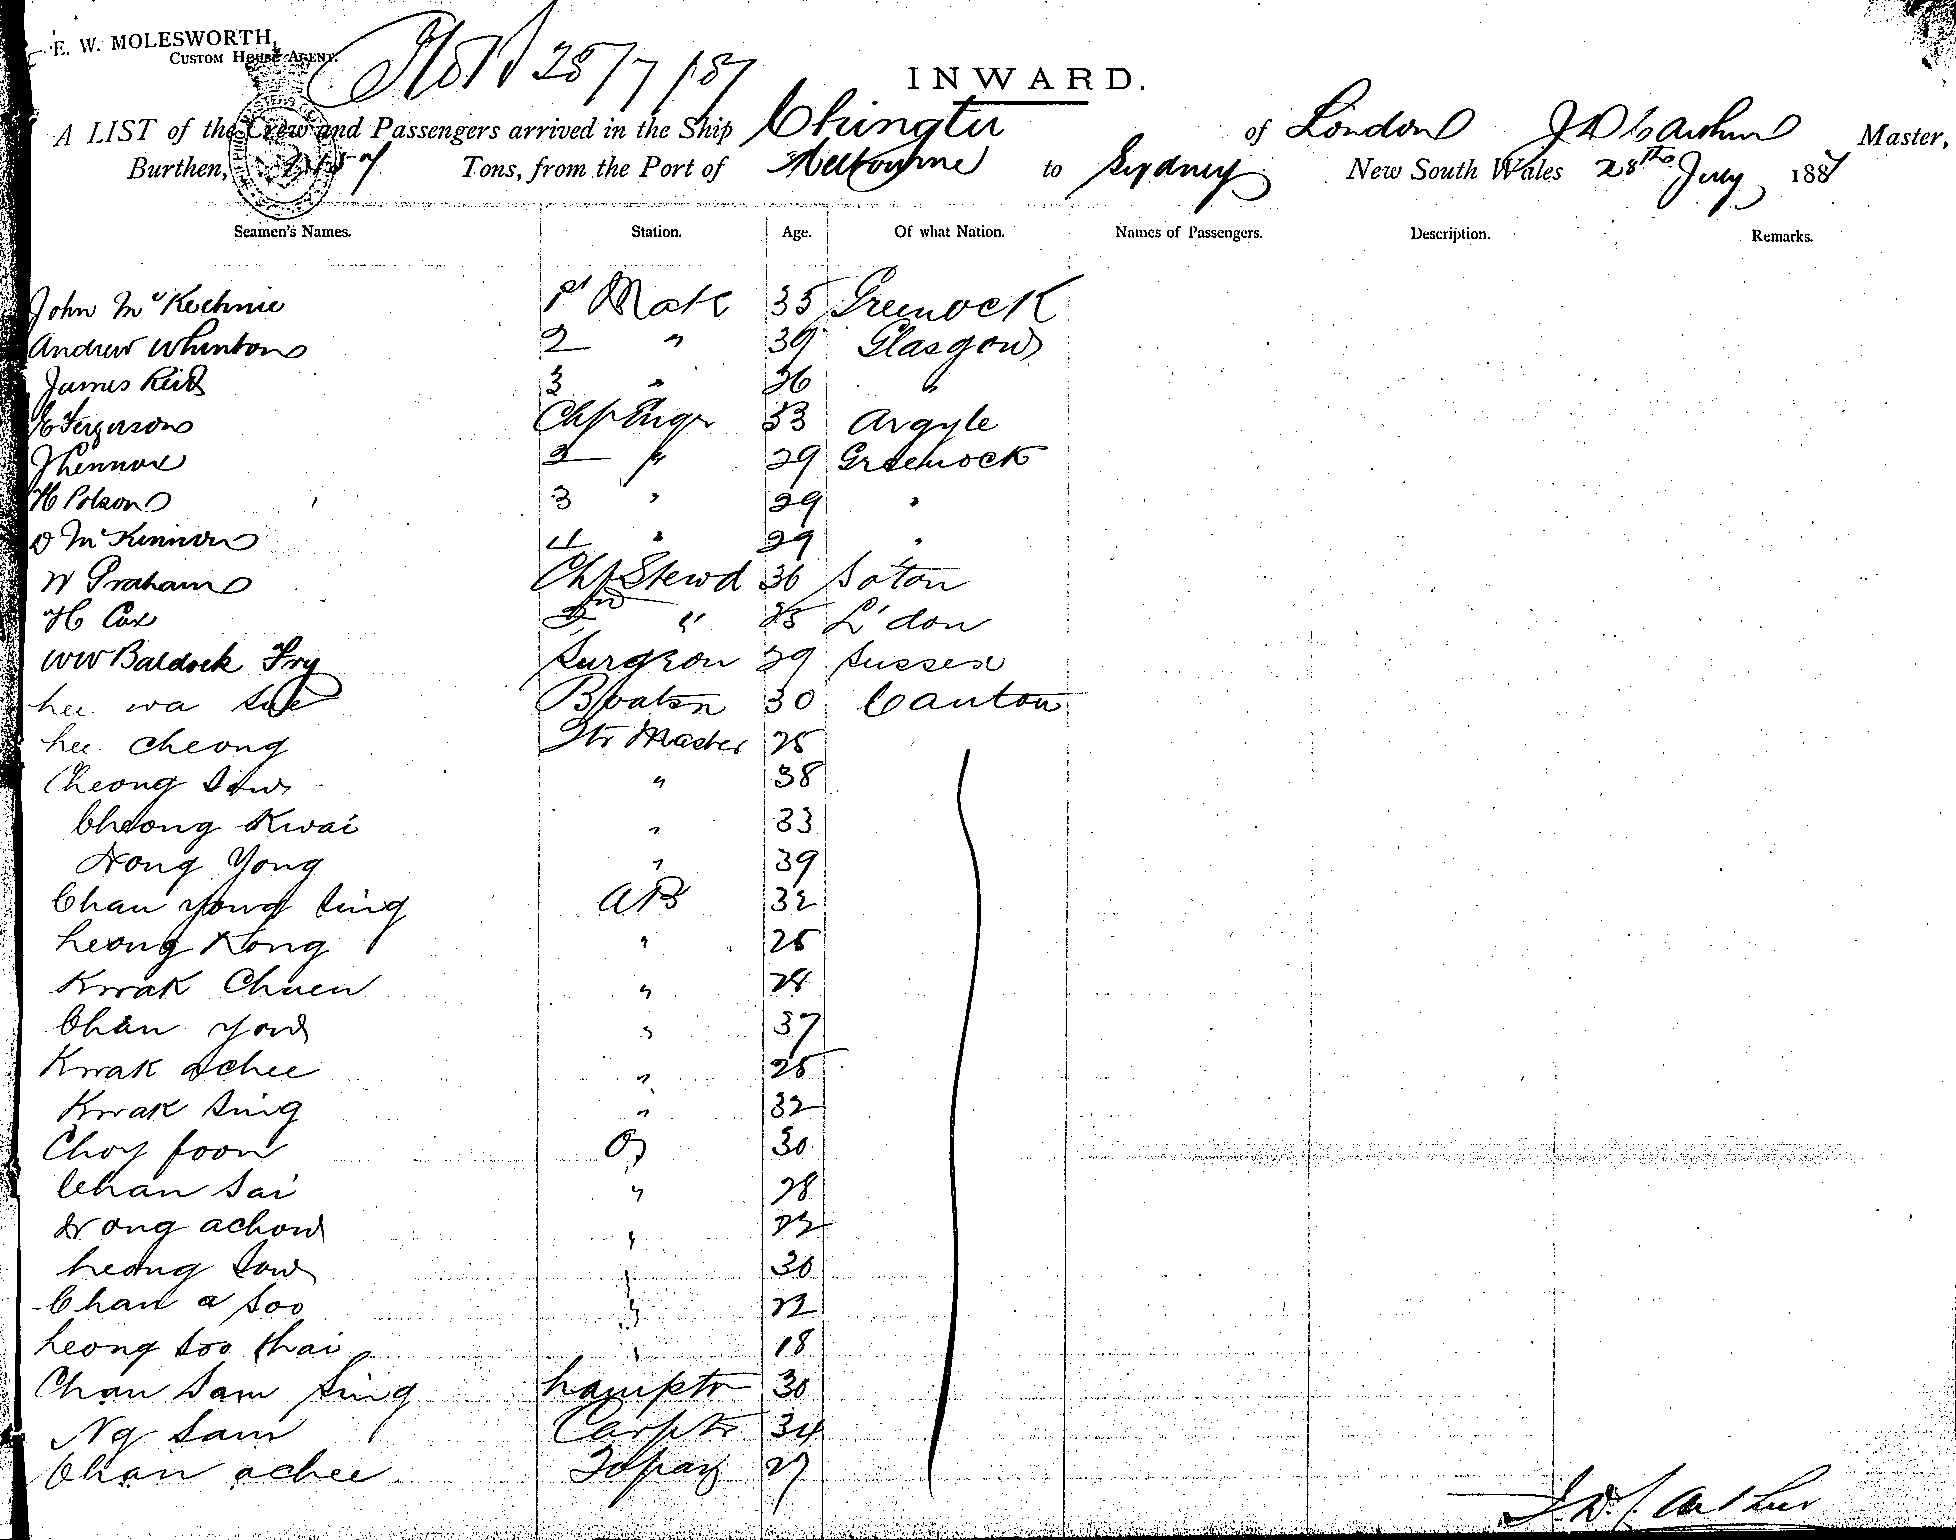 E. W. MOLESWORTH,
CUSTOM HOUSE AGENT.
28/7/87
INWARD.
A LIST of the Crew and Passengers arrived in the Ship Chingtu of London J D C Arthur Master,
Burthen, Tons, from the Port of Melbourne to Sydney New South Wales 28th July 1887
Seamen's Names. Station. Age. Of what Nation. Names of Passengers. Description. Remarks.
John McKechnie 1st Mate 35 Greenock
Andrew Whinton 2 " 39 Glasgow
James Reid 3 " 26 "
Ferguson Chf Engr 33 Argyle
J Lennox 2 " 29 Greenock
H Polson 3 " 29 "
D McKinnon 4 " 29 "
W Graham Chf Stewd 36 So'ton
H Cox 2nd " 25 L'don
WW Baldock Fry Surgeon 29 Sussex
Lee wa Boatsn 30 Canton
Lee Cheong Qtr Master 25
Cheong Sow " 38
Cheong Kwai " 33
Wong Yong " 39
Chan yong Sing AB 32
Leong Kong " 25
Kwak Chuen " 28
Chan yow " 37
Kwak achee " 25
Kwak Sing " 32
Choy foon OS 30
Chan Sai " 28
Wong achow " 22
Leong Sow " 30
Chan a Soo " 22
Leong Soo thai " 18
Chan Sam Sing Lamptr 30
Ng Sam Carptr 34
Chan achee Topaz 27
J. D. C. Arthur